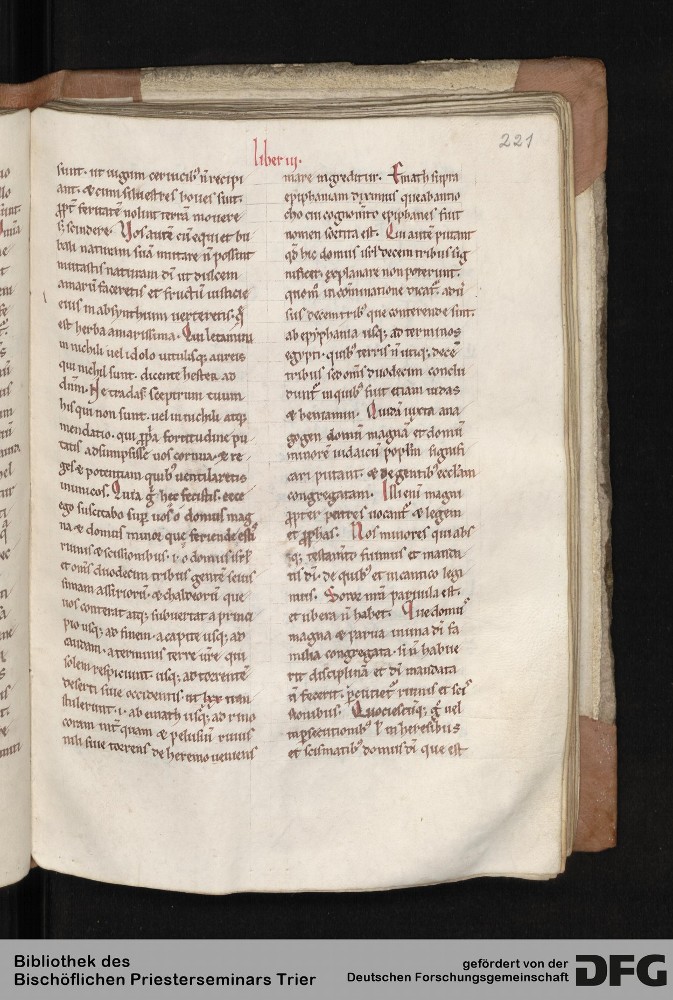 221
liber iii.
sunt. ut iugum ceruicib; n̄ recipi
ant. & cum siluestres boues sint.
ꝓpt̄ feritatē nolint terrā mouere
& scindere. Vos autē cū equi et bu
bali naturam suā mutare n̄ possint
mutastis naturam dī ut dulcem
amarū faceretis et fructū iusticie
eius in absynthium uerteretis. q̄
est herba amarissima. Qui letamini
in nichili uel idolo uitulisq; aureis
qui nichil sunt. dicente hester ad
dnm̄. Ne tradas sceptrum tuum
his qui non sunt. uel in nichili atq;
mendatio. qui ꝓp̄a fortitudine pu
tatis adsumpsisse uos cornua. & re
ges & potentiam quib; uentilaretis
inimicos. Quia g̊ hec fecistis. ecce
ego suscitabo sup̄ uos o domus mag
na & domus minor que feriende estis
ruinis & scissionibus. i. o domus isrl
et om̄s duodecim tribus gentē seuis
simam assiriorū. & chaldeorū que
uos conterat atq; subuertat a princi
pio usq; ad finem. a capite usq; ad
caudam. a terminis terre ūre qui
solem respiciunt. usq; ad torrentē
deserti siue occidentis. ut lxx tran
stulerunt. i. ab emath usq; ad rino
coram int̄ quam & pelusiū riuus
nili siue torrens de heremo ueniens
mare ingreditur. Emath supra
epiphaniam diximus que ab antio
cho cui cognom̄to epiphanes fuit
nomen sortita est. Qui autē putant
qd̄ hic domus isrl decem tribus sig
nificet. explanare non poterunt.
quom̄ in com̄inatione dicat̄. aduer
sus decem trib; que conterende sint.
ab epyphania usq; ad terminos
egypti. quib; terris n̄ utiq; decē
tribus sed om̄s duodecim conclu
dunt̄ in quib; fuit etiam iudas
& beniamin. Quidā iuxta ana
gogen domū magnā et domū
minorē iudaicū popl̄m signifi
cari putant. & de gentib; eccl̄am
congregatam. Illi enī magni
ꝓpter patres uocant̄ & legem
et ꝓph̄as. Nos minores qui abs
q; testam̄to fuimus et manda
tis dī. de quib; et in cantico legi
mus. Soror nr̄a paruula est.
et ubera n̄ habet. Que domus
magna & parua in una dī fa
milia congregata. si n̄ habue
rit disciplinā et dī mandata
n̄ fecerit. ꝑcutiet̄ ruinis et scis
sionibus. Quociescūq; g̊ uel
in ꝑsecutionib; l̄ in heresibus
et scismatib; domus dī que est
Bibliothek des
Bischöflichen Priesterseminars Trier
gefördert von der
Deutschen Forschungsgemeinschaft
DFG